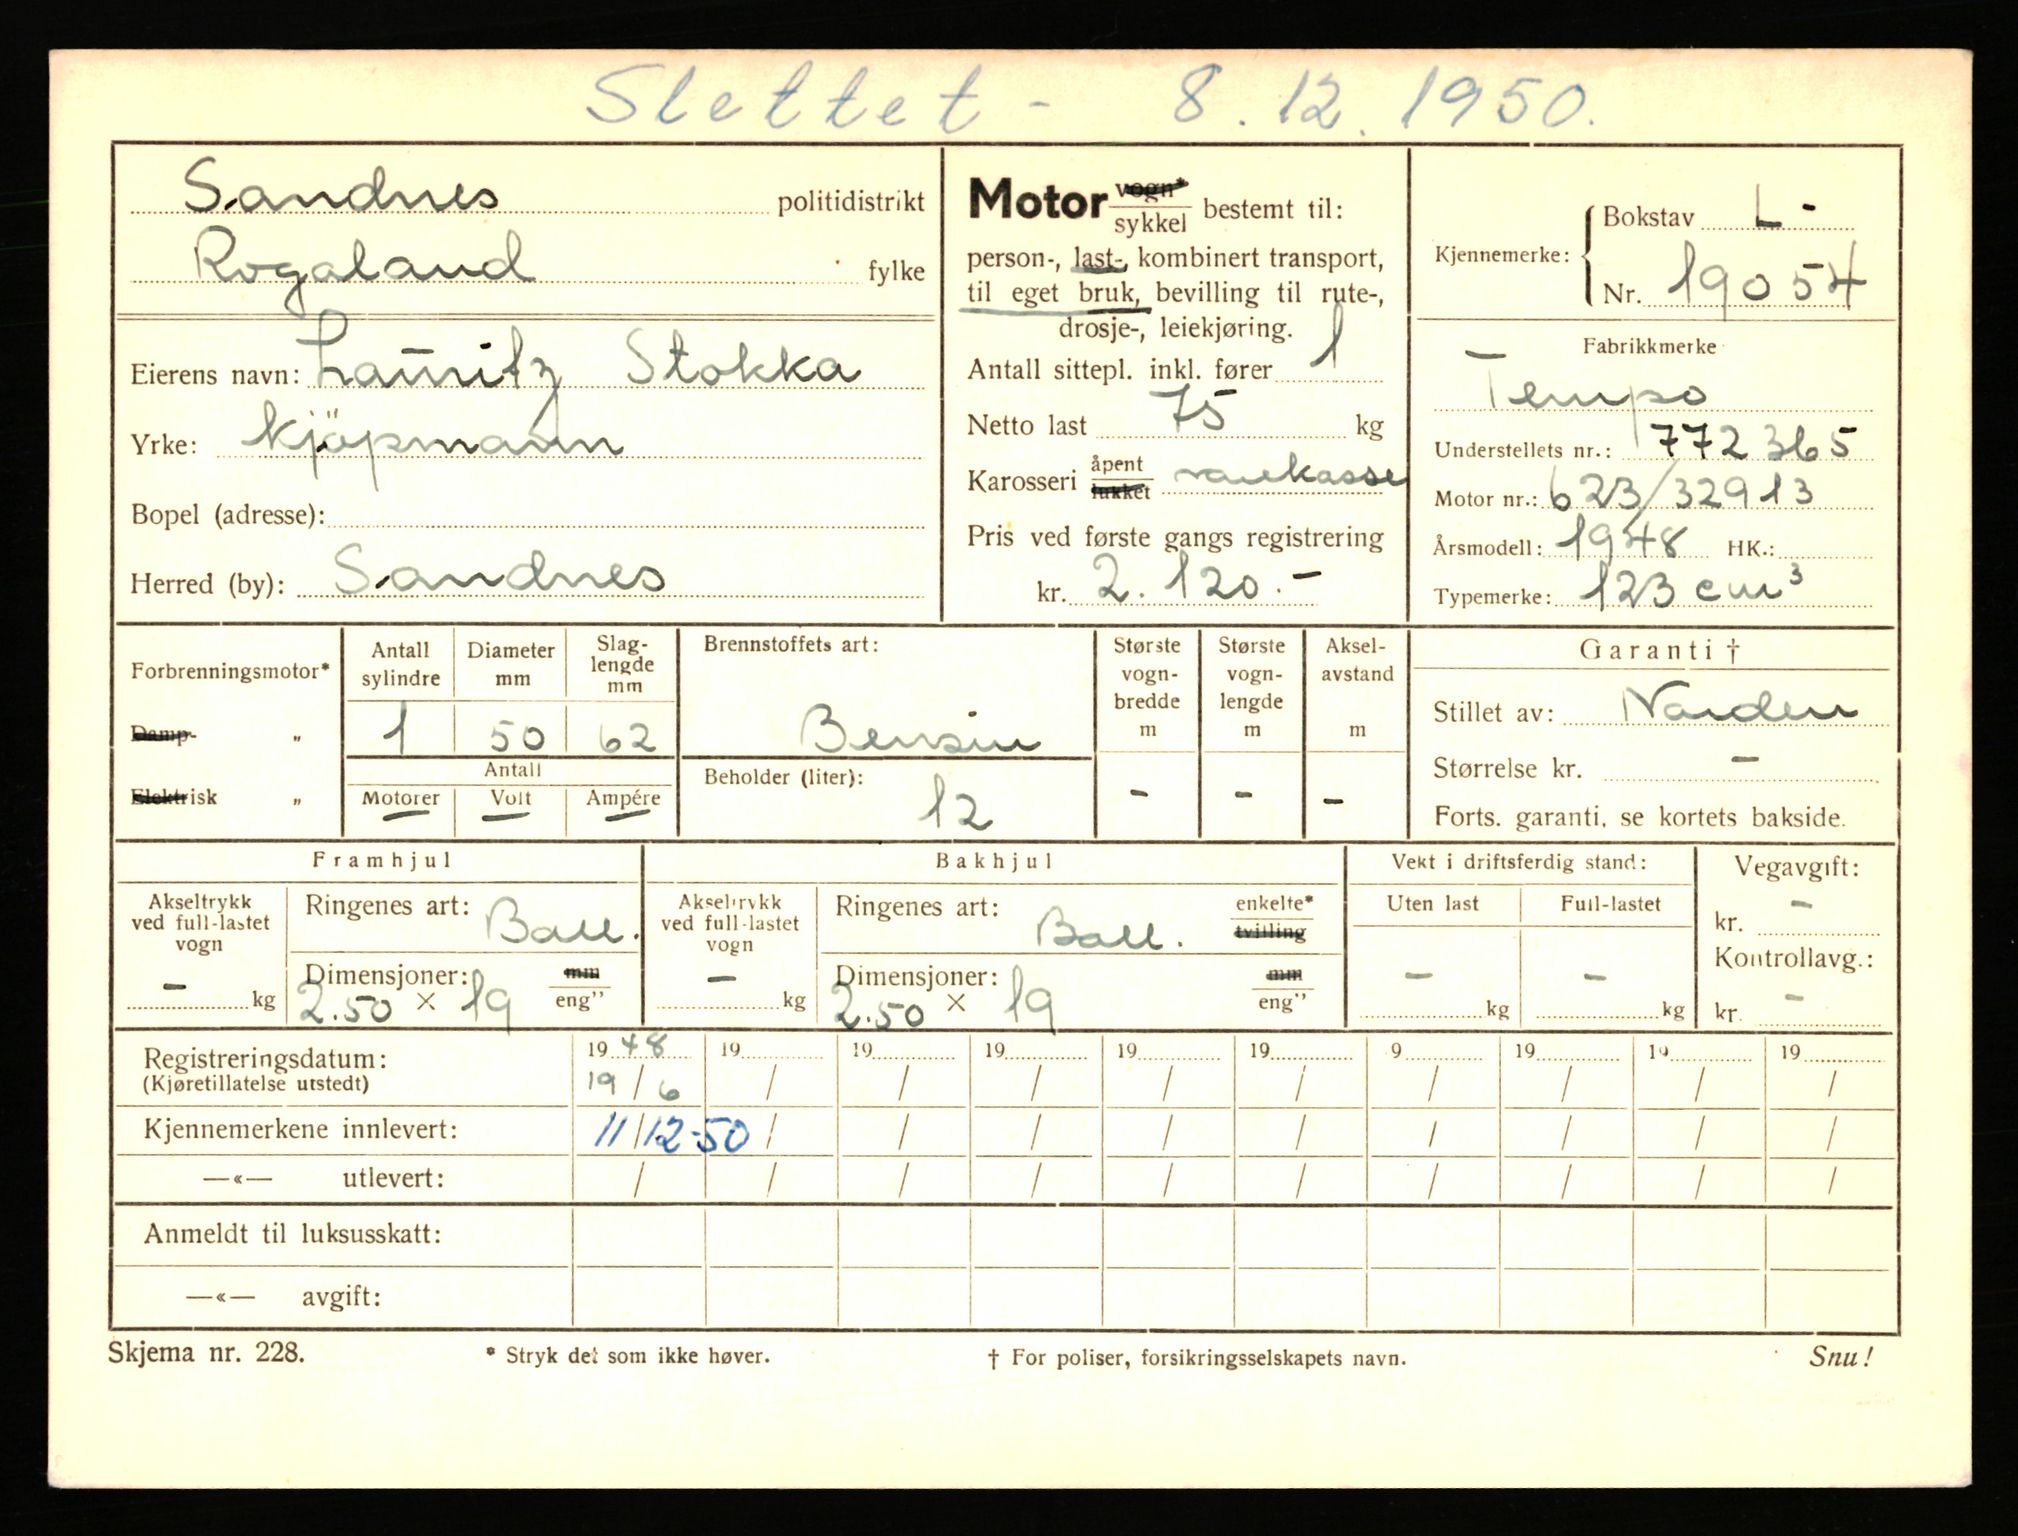 Slettet - 8.12.1950.
Sandnes politidistrikt
Rogaland fylke
Eierens navn: Lauritz Stokka
Yrke: Kjöpmann
Bopel (adresse):
Herred (by): Sandnes
Motor vogn* sykkel bestemt til:
person-, last-, kombinert transport,
til eget bruk, bevilling til rute-,
drosje-, leiekjøring.
Antall sittepl. inkl. fører 1
Netto last 75 kg
Karosseri åpent lukket varekasse
Pris ved første gangs registrering
kr. 2.120.-
Kjennemerke: Bokstav L-
Nr. 19054
Fabrikkmerke
Tempo
Understellets nr.: 772365
Motor nr.: 623/32913
Årsmodell: 1948 HK.:
Typemerke: 123 cm³
Forbrenningsmotor*
Damp- "
Elektrisk "
Antall sylindre
1
Diameter mm
50
Slag-lengde mm
62
Antall
Motorer Volt Ampére
— — —
Brennstoffets art:
Bensin
Beholder (liter):
12
Største vogn-bredde m
-
Største vogn-lengde m
-
Aksel-avstand m
-
Garanti †
Stillet av: Norden
Størrelse kr. -
Forts. garanti, se kortets bakside.
Framhjul
Akseltrykk ved full-lastet vogn
- kg
Ringenes art: Ball.
Dimensjoner: mm
2.50 × 19 eng"
Bakhjul
Akseltrykk ved full-lastet vogn
- kg
Ringenes art: Ball. enkelte* tvilling
Dimensjoner: mm
2.50 × 19 eng"
Vekt i driftsferdig stand:
Uten last Full-lastet
- kg - kg
Vegavgift:
kr. -
Kontrollavg.:
kr. -
Registreringsdatum: 1948 19 19 19 19 19 9 19 19 19
(Kjøretillatelse utstedt) 19/6 / / / / / / / / /
Kjennemerkene innlevert: 11/12-50 / / / / / / / / /
—«— utlevert: / / / / / / / / / /
Anmeldt til luksusskatt:
—«— avgift:
Skjema nr. 228. * Stryk det som ikke høver. † For poliser, forsikringsselskapets navn. Snu!